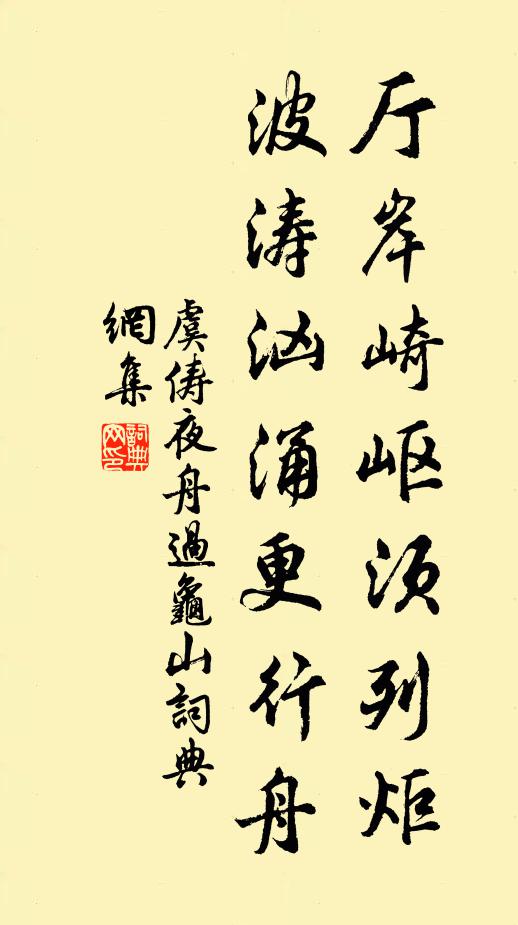 厅岸崎岖须列炬
波涛汹涌更行舟
虞俦夜舟過龜山詞典
網集
詞典
网印